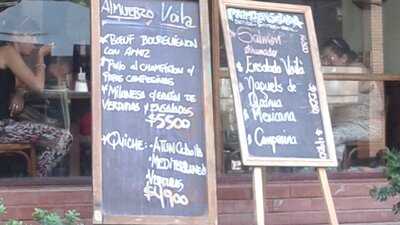 Almuerzo Voila
* Boeuf Bourguignon
con Arroz
* Pollo al champiñon c/
papas campesinas
* Milanesa c/
verduras y ensaladas
$5500
* Quiche: - Atun Cebolla
- Mediterraneo
- Verduras
$4900
Salmón
ahumado
* Ensalada Voilà
* Ñoquis de
* Mexicana
* Campesina